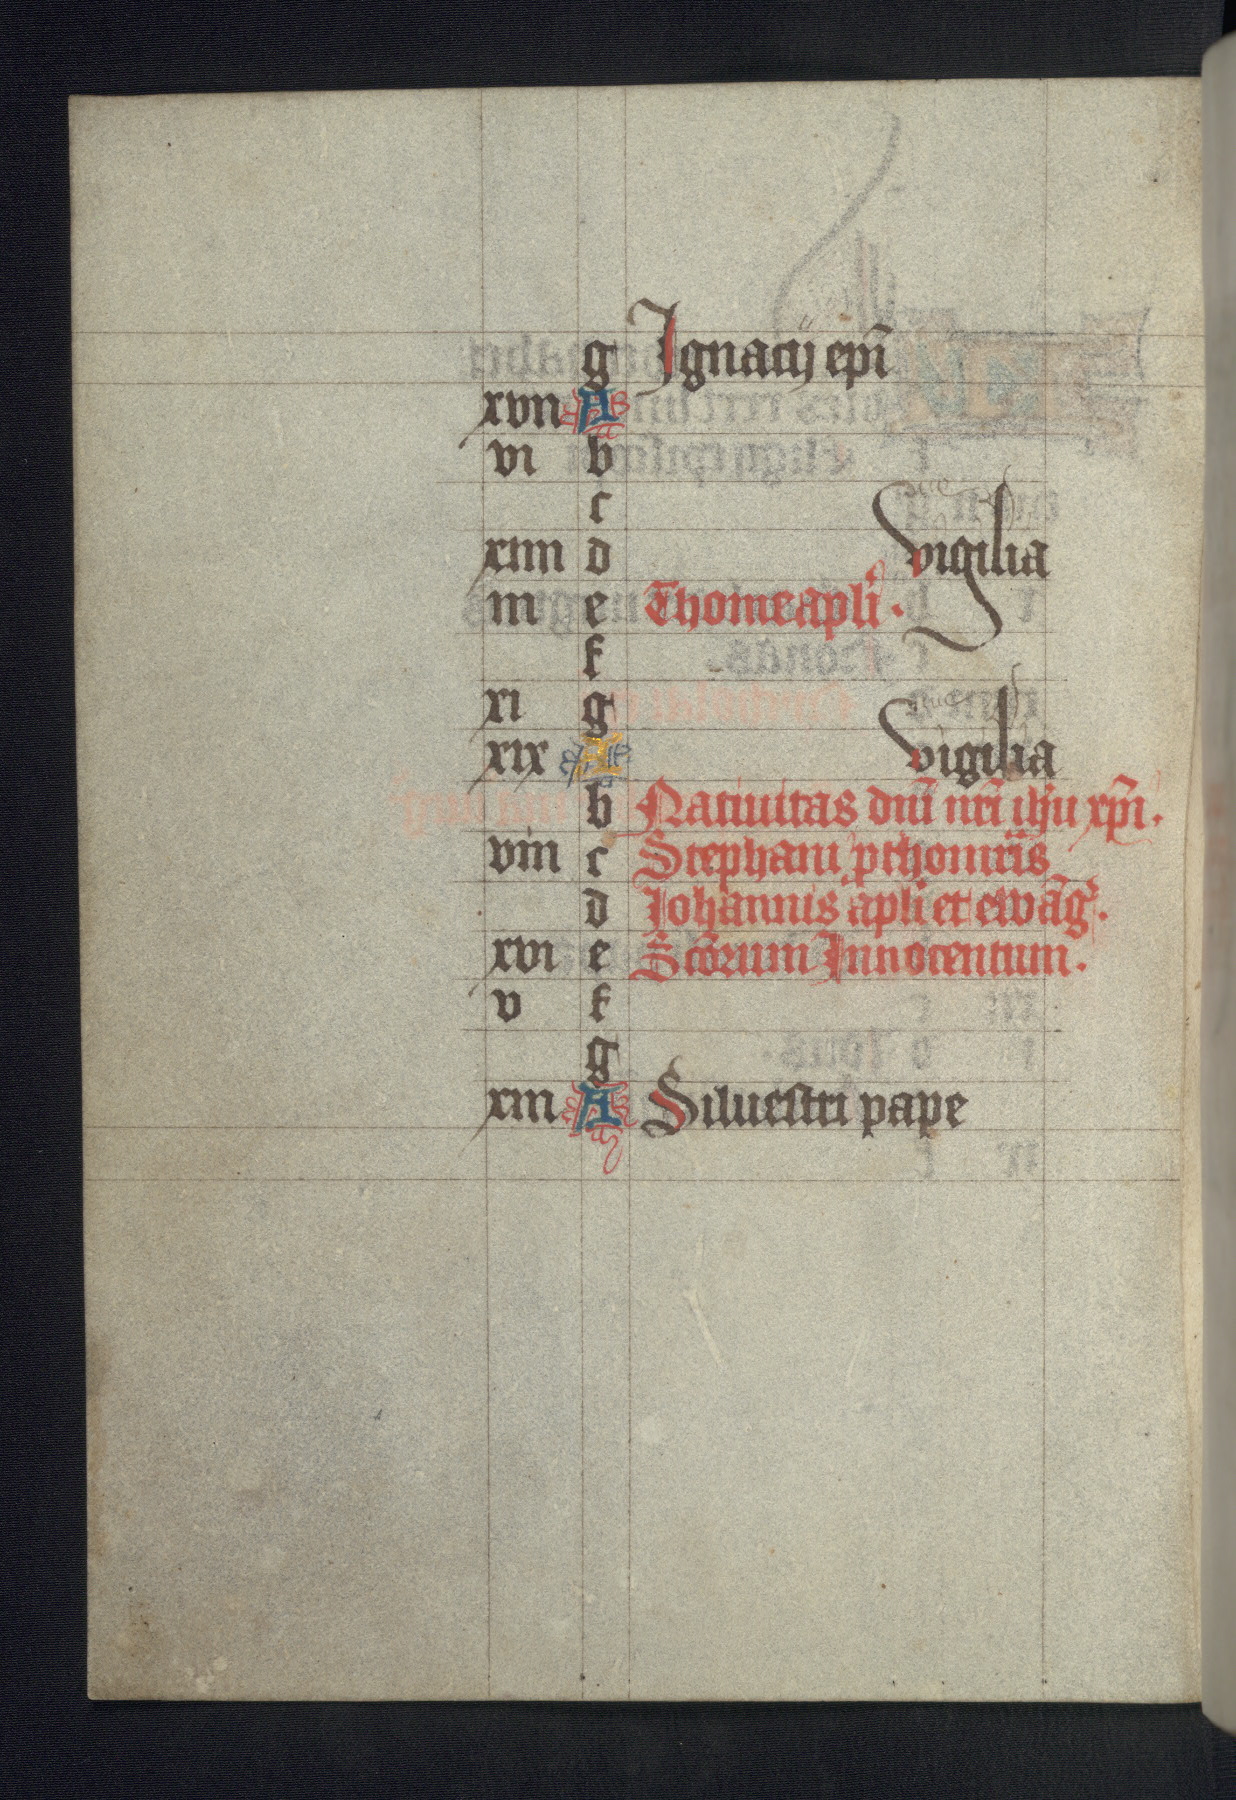 g Ignacij ep̄i
xvii A
vi b
c
xiiii d vigilia
iii e Thome apl̄i.
f
xi g
xix A vigilia
b Natiuitas dn̄i nr̄i ih̄u xp̄i.
viii c Stephani ꝓthomr̄is
d Johannis apl̄i et ewāg.
xvi e Sc̄orum Innocentum.
v f
g
xiii A Siluestri pape